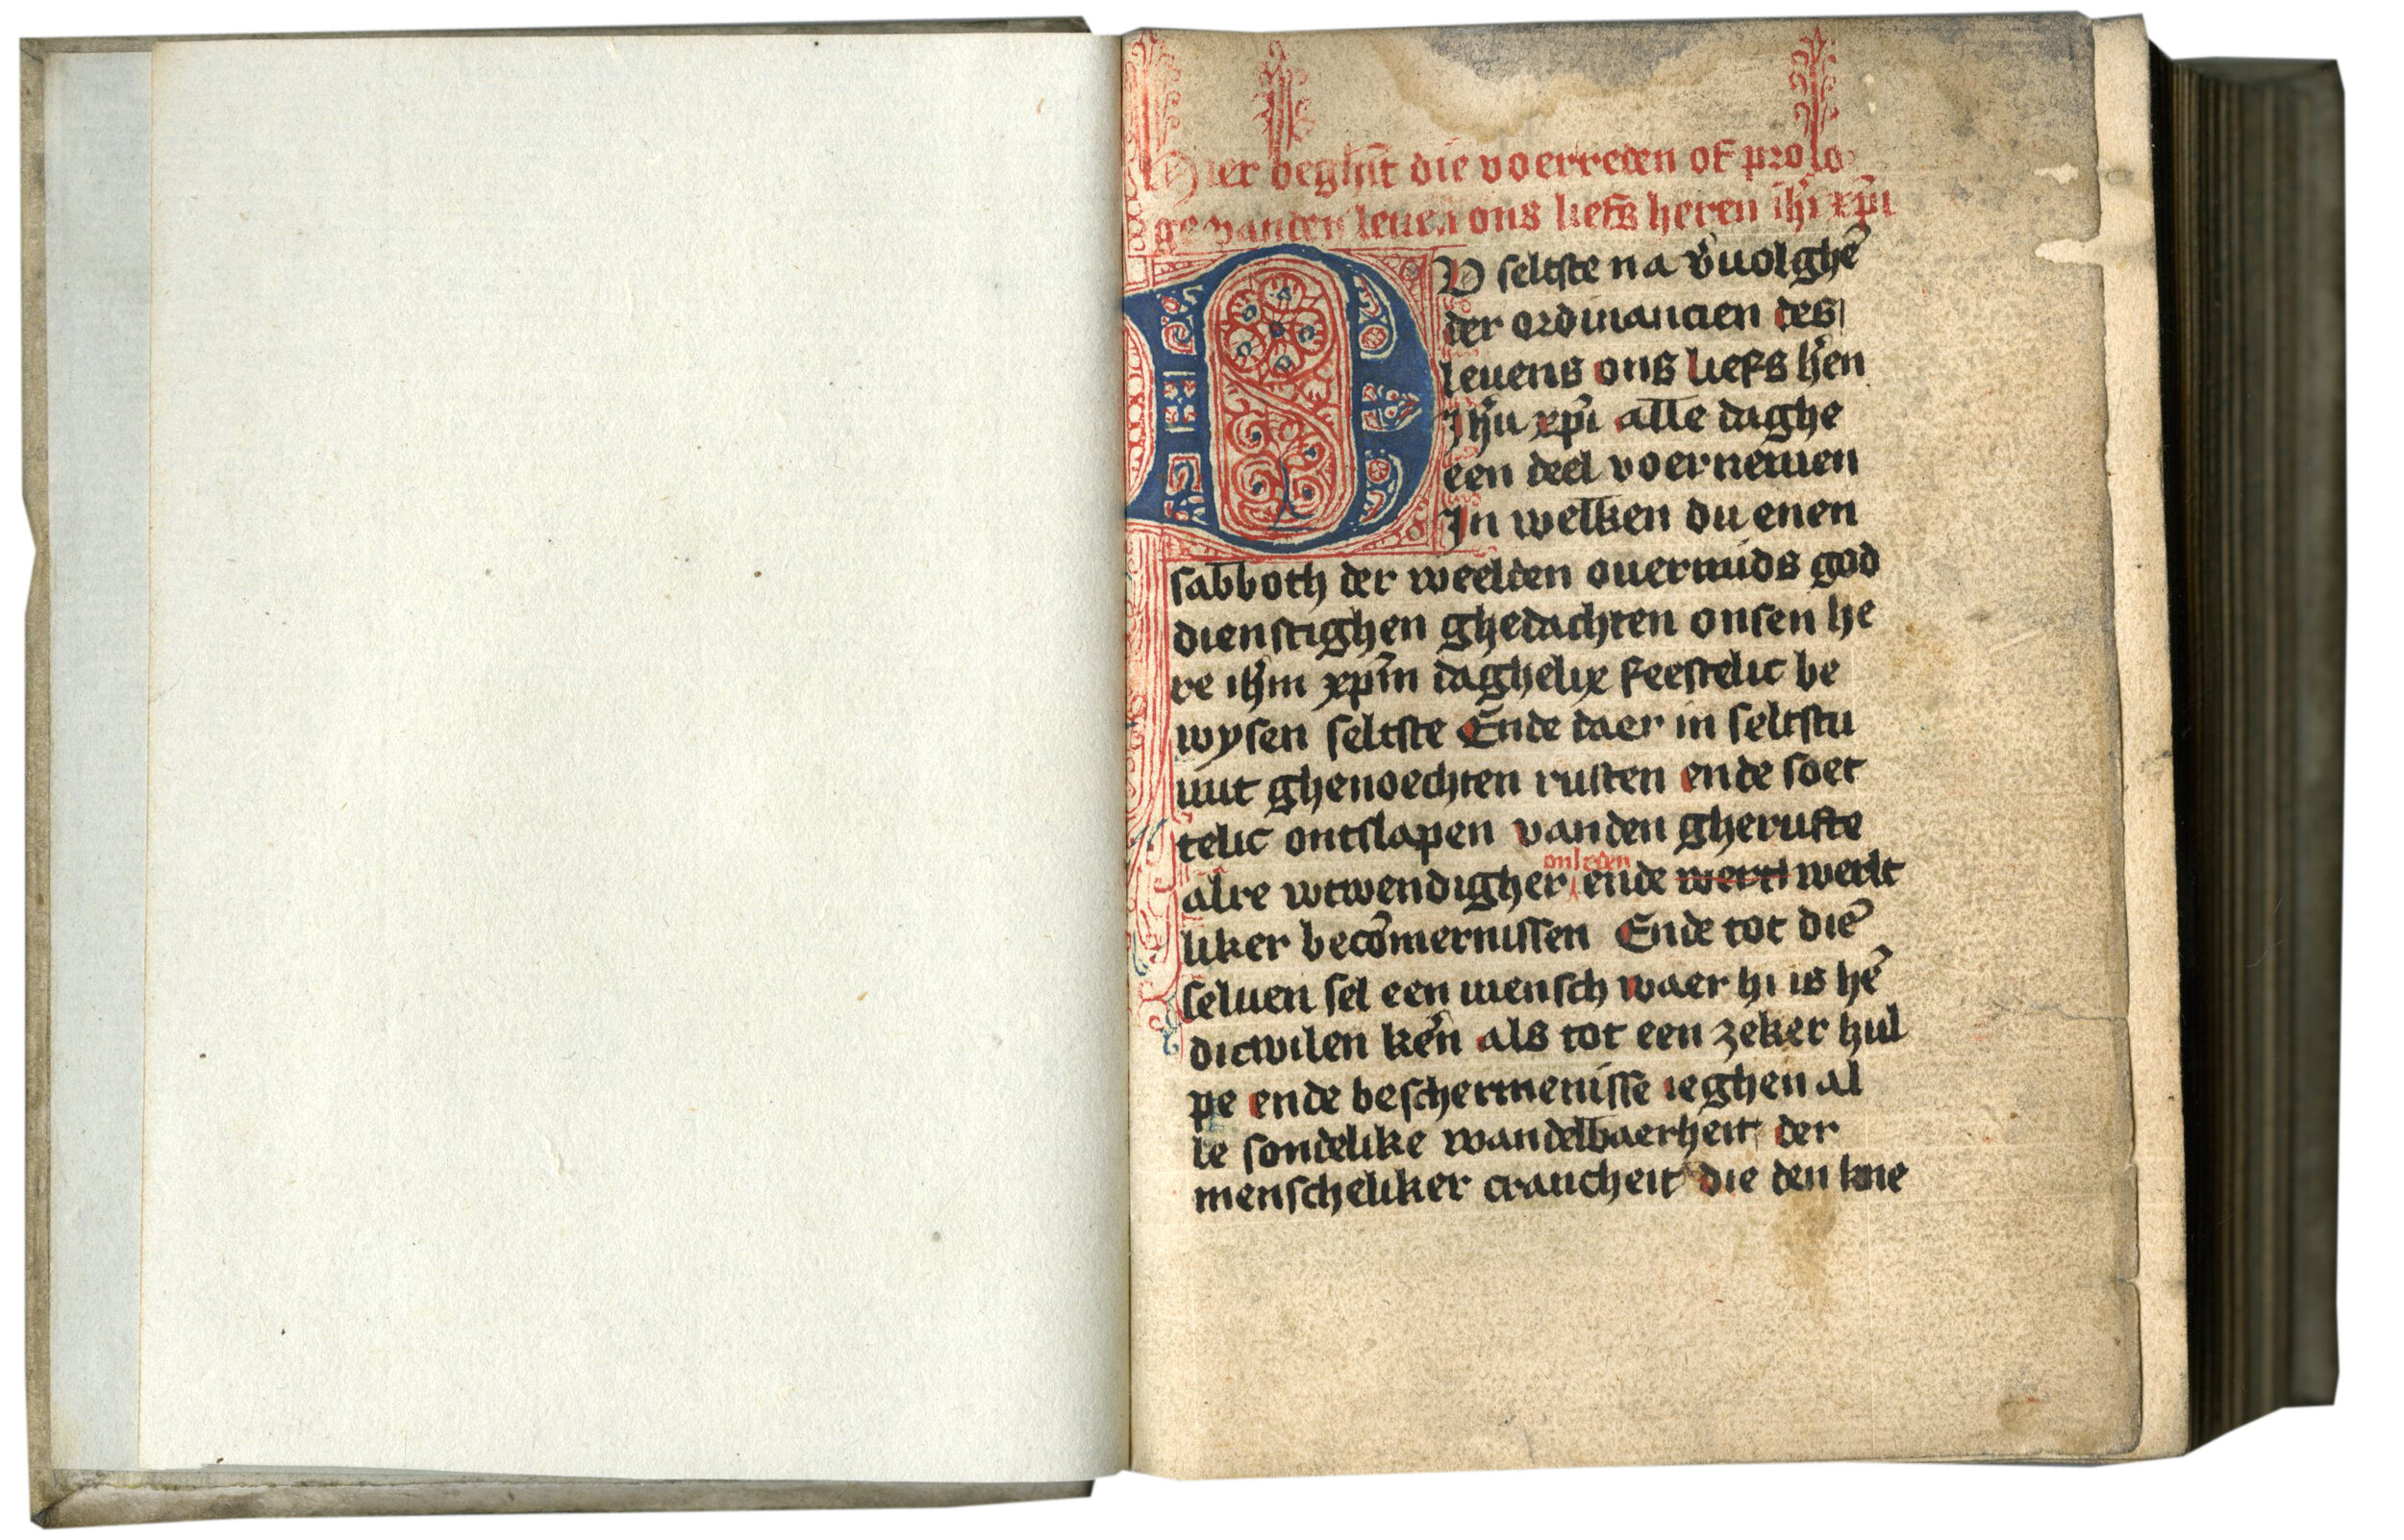 Hier beghīt die voerreden of prolo
ge vanden leuen ons liefs heren ih̄u xp̄i
DU seltste na v̄uolghē
der ordinancien des
leuens ons liefs h̄en
Ih̄u xp̄i alle daghe
een deel voernemen
In welken du enen
sabboth der weelden ouermids god
dienstighen ghedachten onsen he
re ih̄m xp̄m daghelix feestelic be
wysen seltste Ende daer in seltstu
mit ghenoechten rusten ende soet
telic ontslapen vanden gherufte
alre wtwendigher onleden ende wertl werlt
liker becōmernissen Ende tot diē
seluen sel een mensch waer hi is hē
dicwilen kēn als tot een zeker hul
pe ende beschermenisse ieghen al
le sondelike wandelbaerheit der
menscheliker crancheit die den kne